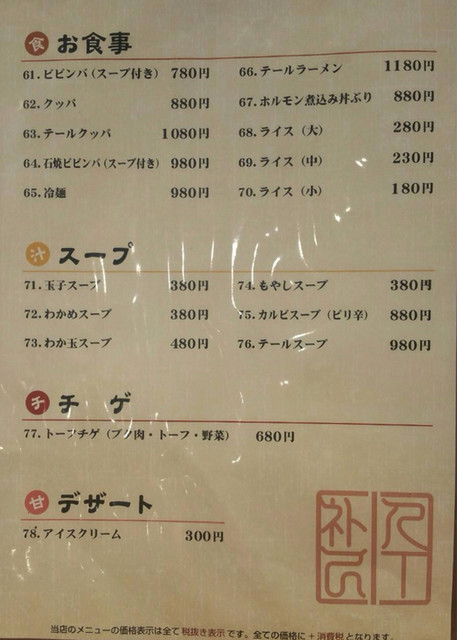 食 お食事
61.ビビンバ(スープ付き) 780円
62.クッパ 880円
63.テールクッパ 1080円
64.石焼ビビンバ(スープ付き) 980円
65.冷麺 980円
66.テールラーメン 1180円
67.ホルモン煮込み丼ぶり 880円
68.ライス(大) 280円
69.ライス(中) 230円
70.ライス(小) 180円
汁 スープ
71.玉子スープ 380円
72.わかめスープ 380円
73.わか玉スープ 480円
74.もやしスープ 380円
75.カルビスープ(ピリ辛) 880円
76.テールスープ 980円
チ チゲ
77.トーフチゲ(ブタ肉・トーフ・野菜) 680円
甘 デザート
78.アイスクリーム 300円
当店のメニューの価格表示は全て税抜き表示です。全ての価格に+消費税となります。